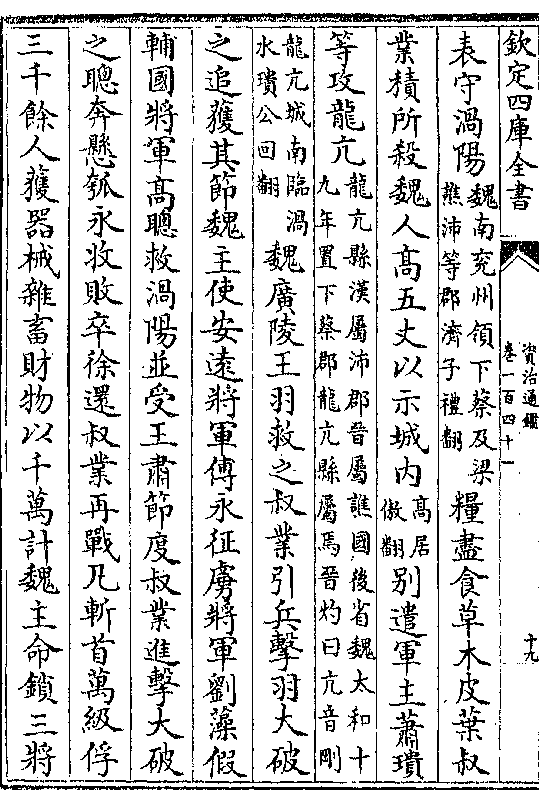 欽定四庫全書
資治通鑑
卷一百四十一
十九
表守渦陽魏南兖州領下蔡及梁譙沛等郡濟子禮翻糧盡食草木皮葉叔
業積所殺魏人髙五丈以示城内髙居傲翻别遣軍主蕭璝
等攻龍亢龍亢縣漢屬沛郡晉屬譙國後省魏太和十九年置下蔡郡龍亢縣屬焉晉灼曰亢音剛
龍亢城南臨渦水璝公回翻魏廣陵王羽救之叔業引兵擊羽大破
之追獲其節魏主使安遠將軍傅永征虜將軍劉藻假
輔國將軍髙聰救渦陽並受王肅節度叔業進擊大破
之聰奔懸瓠永收敗卒徐還叔業再戰凡斬首萬級俘
三千餘人獲器械雜畜財物以千萬計魏主命鎖三將